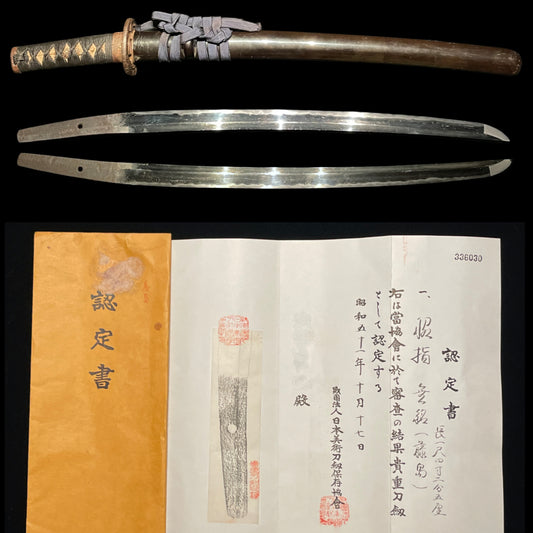 認定書
336030
認定書
一、脇指 無銘(藤島)
長一尺四寸二分五厘
右は當協會に於て審査の結果貴重刀剣
として認定する
昭和五十一年十月十七日
財團法人日本美術刀剣保存協會
殿